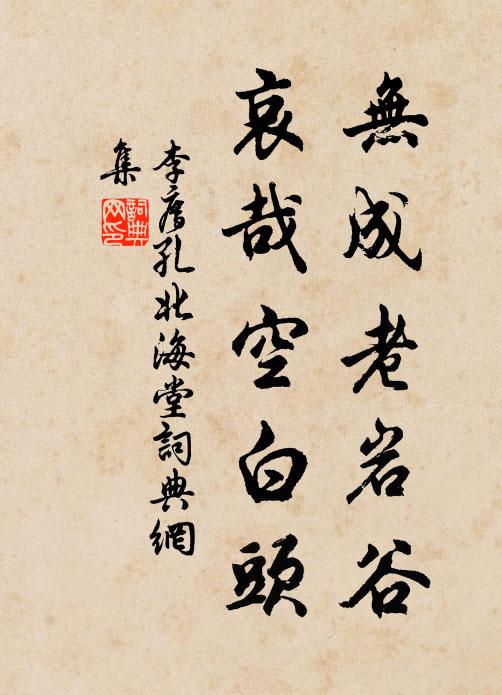 無成老岩谷
哀哉空白頭
李膺孔北海堂詞典網
集
詞典網印